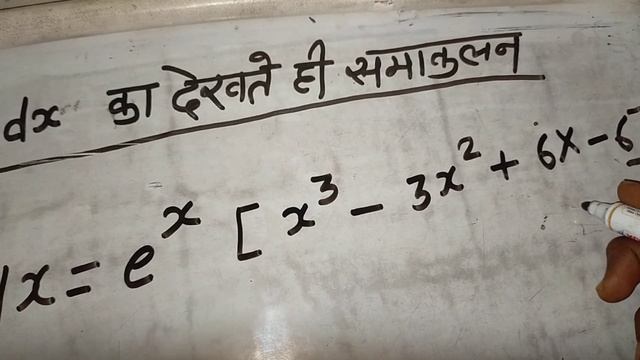 dx का देखते ही समाकुलन
dx = e^x [ x^3 - 3x^2 + 6x - 6